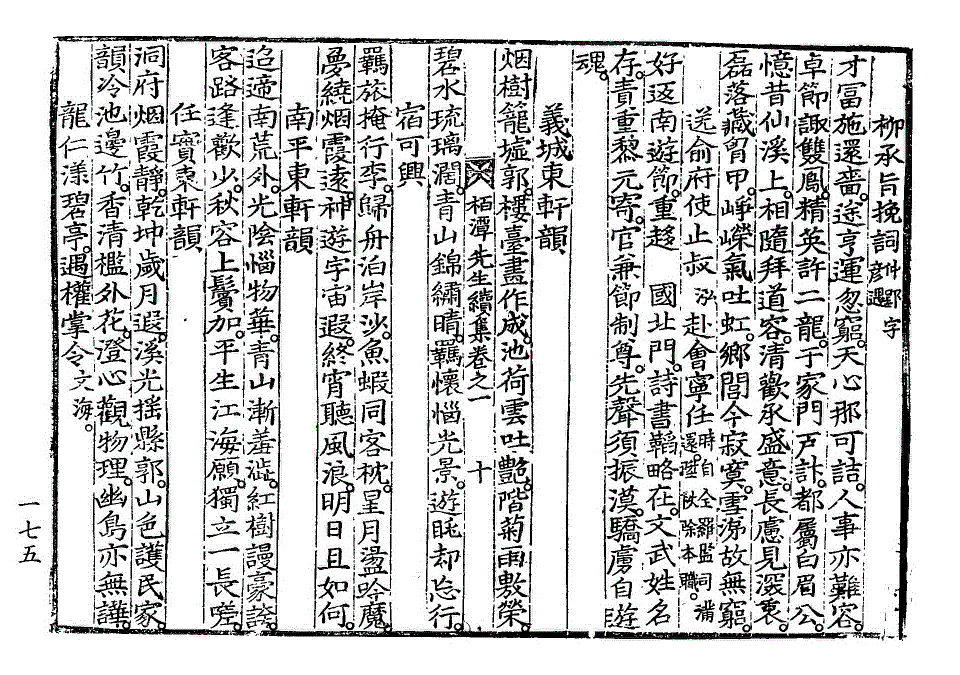 柳承旨挽詞 仲郢字彦遇
才富施還嗇。途亨運忽窮。天心那可詰。人事亦難容。
卓節諏雙鳳。精英許二龍。于家門戶計。都屬白眉公。
憶昔仙溪上。相隨拜道容。清歡承盛意。長慮見深衷。
磊落藏胷甲。崢嶸氣吐虹。鄉閭今寂寞。雪涕故無窮。
送俞府使止叔 泓 赴會寧任 時自全羅監司滿還。陞秩除本職。
好逐南遊節。重趍 國北門。詩書韜略在。文武姓名
存。責重黎元寄。官兼節制尊。先聲須振漠。驕虜自遊
魂。
義城東軒韻
烟樹籠墟郭。樓臺畫作成。池荷雲吐艷。階菊雨敷榮。
栢潭先生續集卷之一 十
碧水琉璃濶。青山錦繡晴。羈懷惱光景。遊眺却忘行。
宿可興
羈旅掩行李。歸舟泊岸沙。魚蝦同客枕。星月盪吟魔。
夢繞烟霞遠。神遊宇宙遐。終宵聽風浪。明日且如何。
南平東軒韻
迢遞南荒外。光陰惱物華。青山漸羞澁。紅樹謾豪誇。
客路逢歡少。秋容上鬢加。平生江海願。獨立一長嗟。
任實東軒韻
洞府烟霞靜。乾坤歲月遐。溪光搖縣郭。山色護民家。
韻冷池邊竹。香清檻外花。澄心觀物理。幽鳥亦無譁。
龍仁漾碧亭。遇權掌令 文海。
一七五